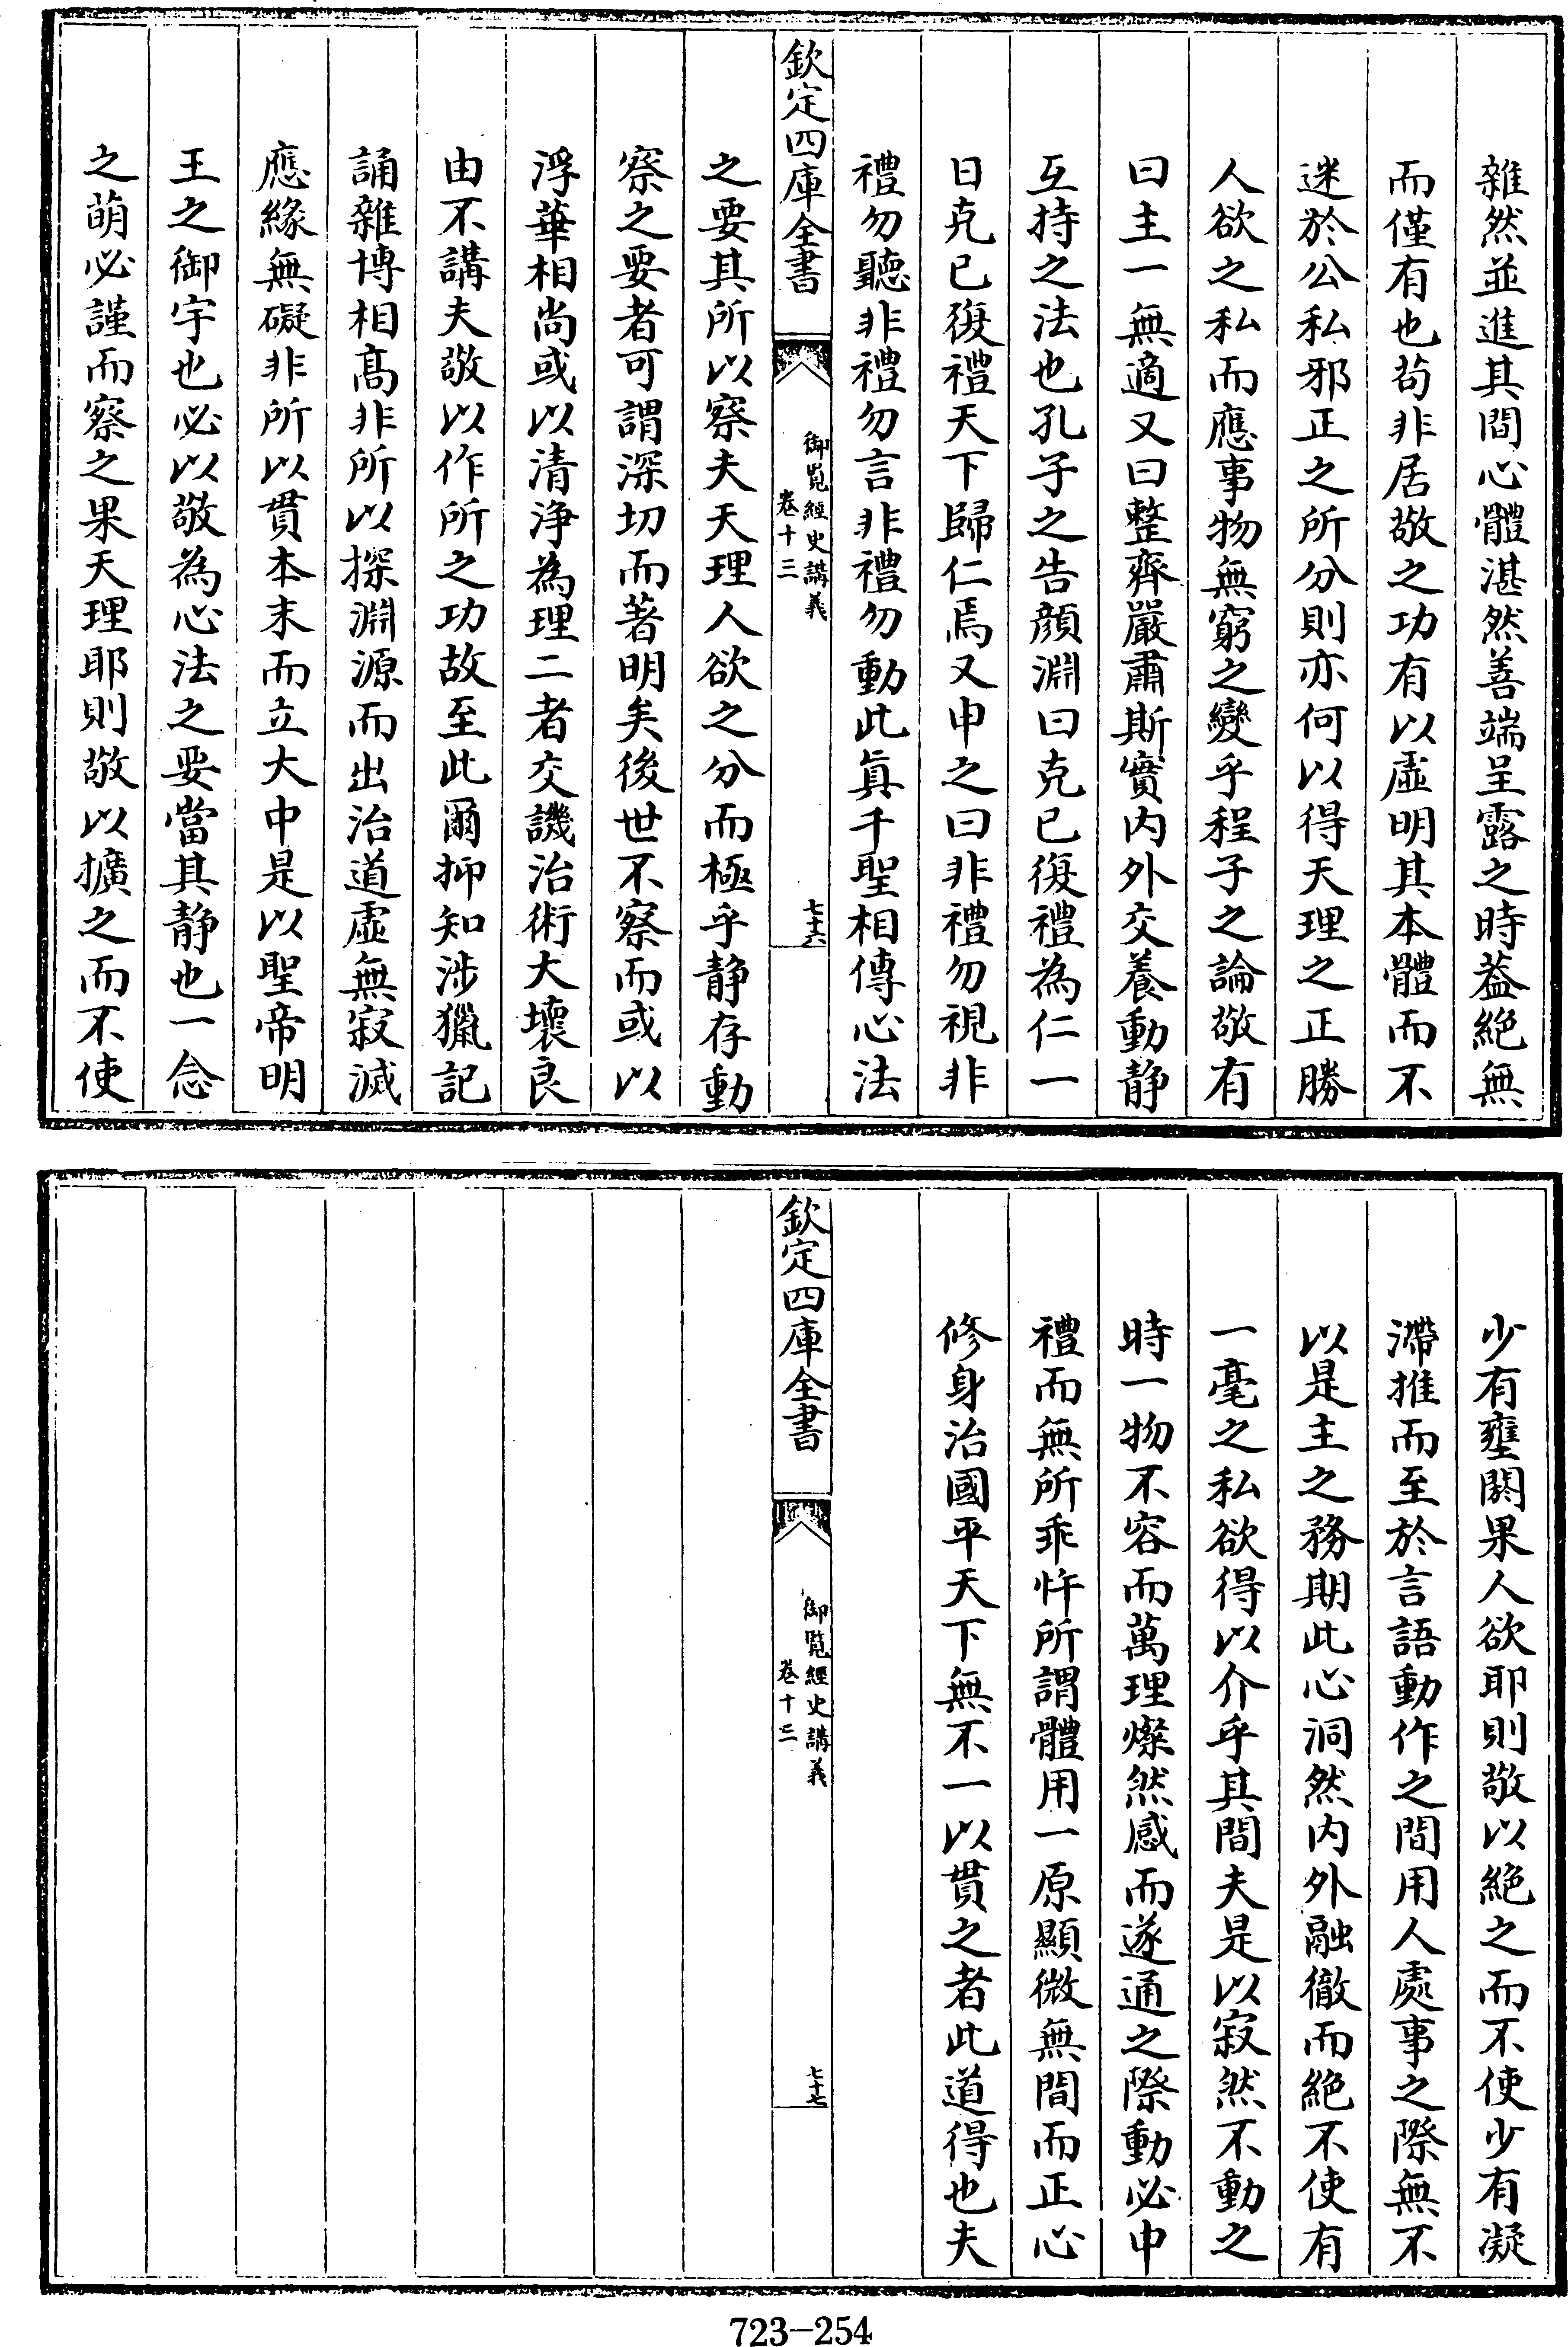 雜然並進其間心體湛然善端呈露之時葢絕無
而僅有也茍非居敬之功有以虛明其本體而不
迷於公私邪正之所分則亦何以得天理之正勝
人欲之私而應事物無窮之變乎程子之論敬有
曰主一無適又曰整齊嚴肅斯實内外交養動静
互持之法也孔子之告顔淵曰克已復禮為仁一
日克已復禮天下歸仁焉又申之曰非禮勿視非
禮勿聽非禮勿言非禮勿動此真千聖相傳心法
欽定四庫全書
御覽經史講義
卷十三
七十六
之要其所以察夫天理人欲之分而極乎静存動
察之要者可謂深切而著明矣後世不察而或以
浮華相尚或以清浄為理二者交譏治術大壞良
由不講夫敬以作所之功故至此爾抑知涉獵記
誦雜博相髙非所以探淵源而出治道虛無寂滅
應緣無礙非所以貫本末而立大中是以聖帝明
王之御宇也必以敬為心法之要當其静也一念
之萌必謹而察之果天理耶則敬以擴之而不使
少有壅閼果人欲耶則敬以絶之而不使少有凝
滯推而至於言語動作之間用人處事之際無不
以是主之務期此心洞然内外融徹而絶不使有
一毫之私欲得以介乎其間夫是以寂然不動之
時一物不容而萬理燦然感而遂通之際動必中
禮而無所乖忤所謂體用一原顯微無間而正心
修身治國平天下無不一以貫之者此道得也夫
欽定四庫全書
御覽經史講義
卷十三
七十七
723-254